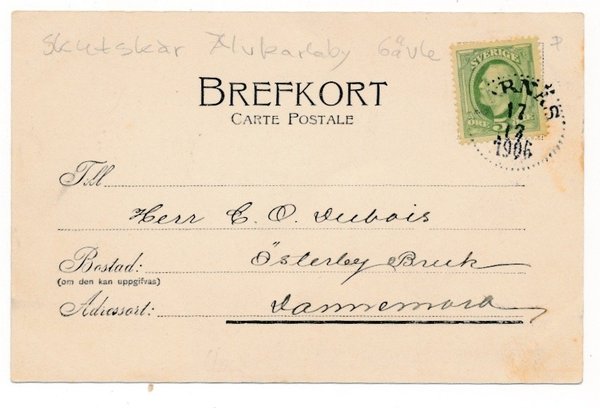 Skutskär Älvkarleby Gävle
SVERIGE
BREFKORT
CARTE POSTALE
ÖRE 5
RNÄS
17
12
1906
Till
Herr C. O. Dubois
Bostad: Österby Bruk
(om den kan uppgifvas)
Adressort: Dannemora